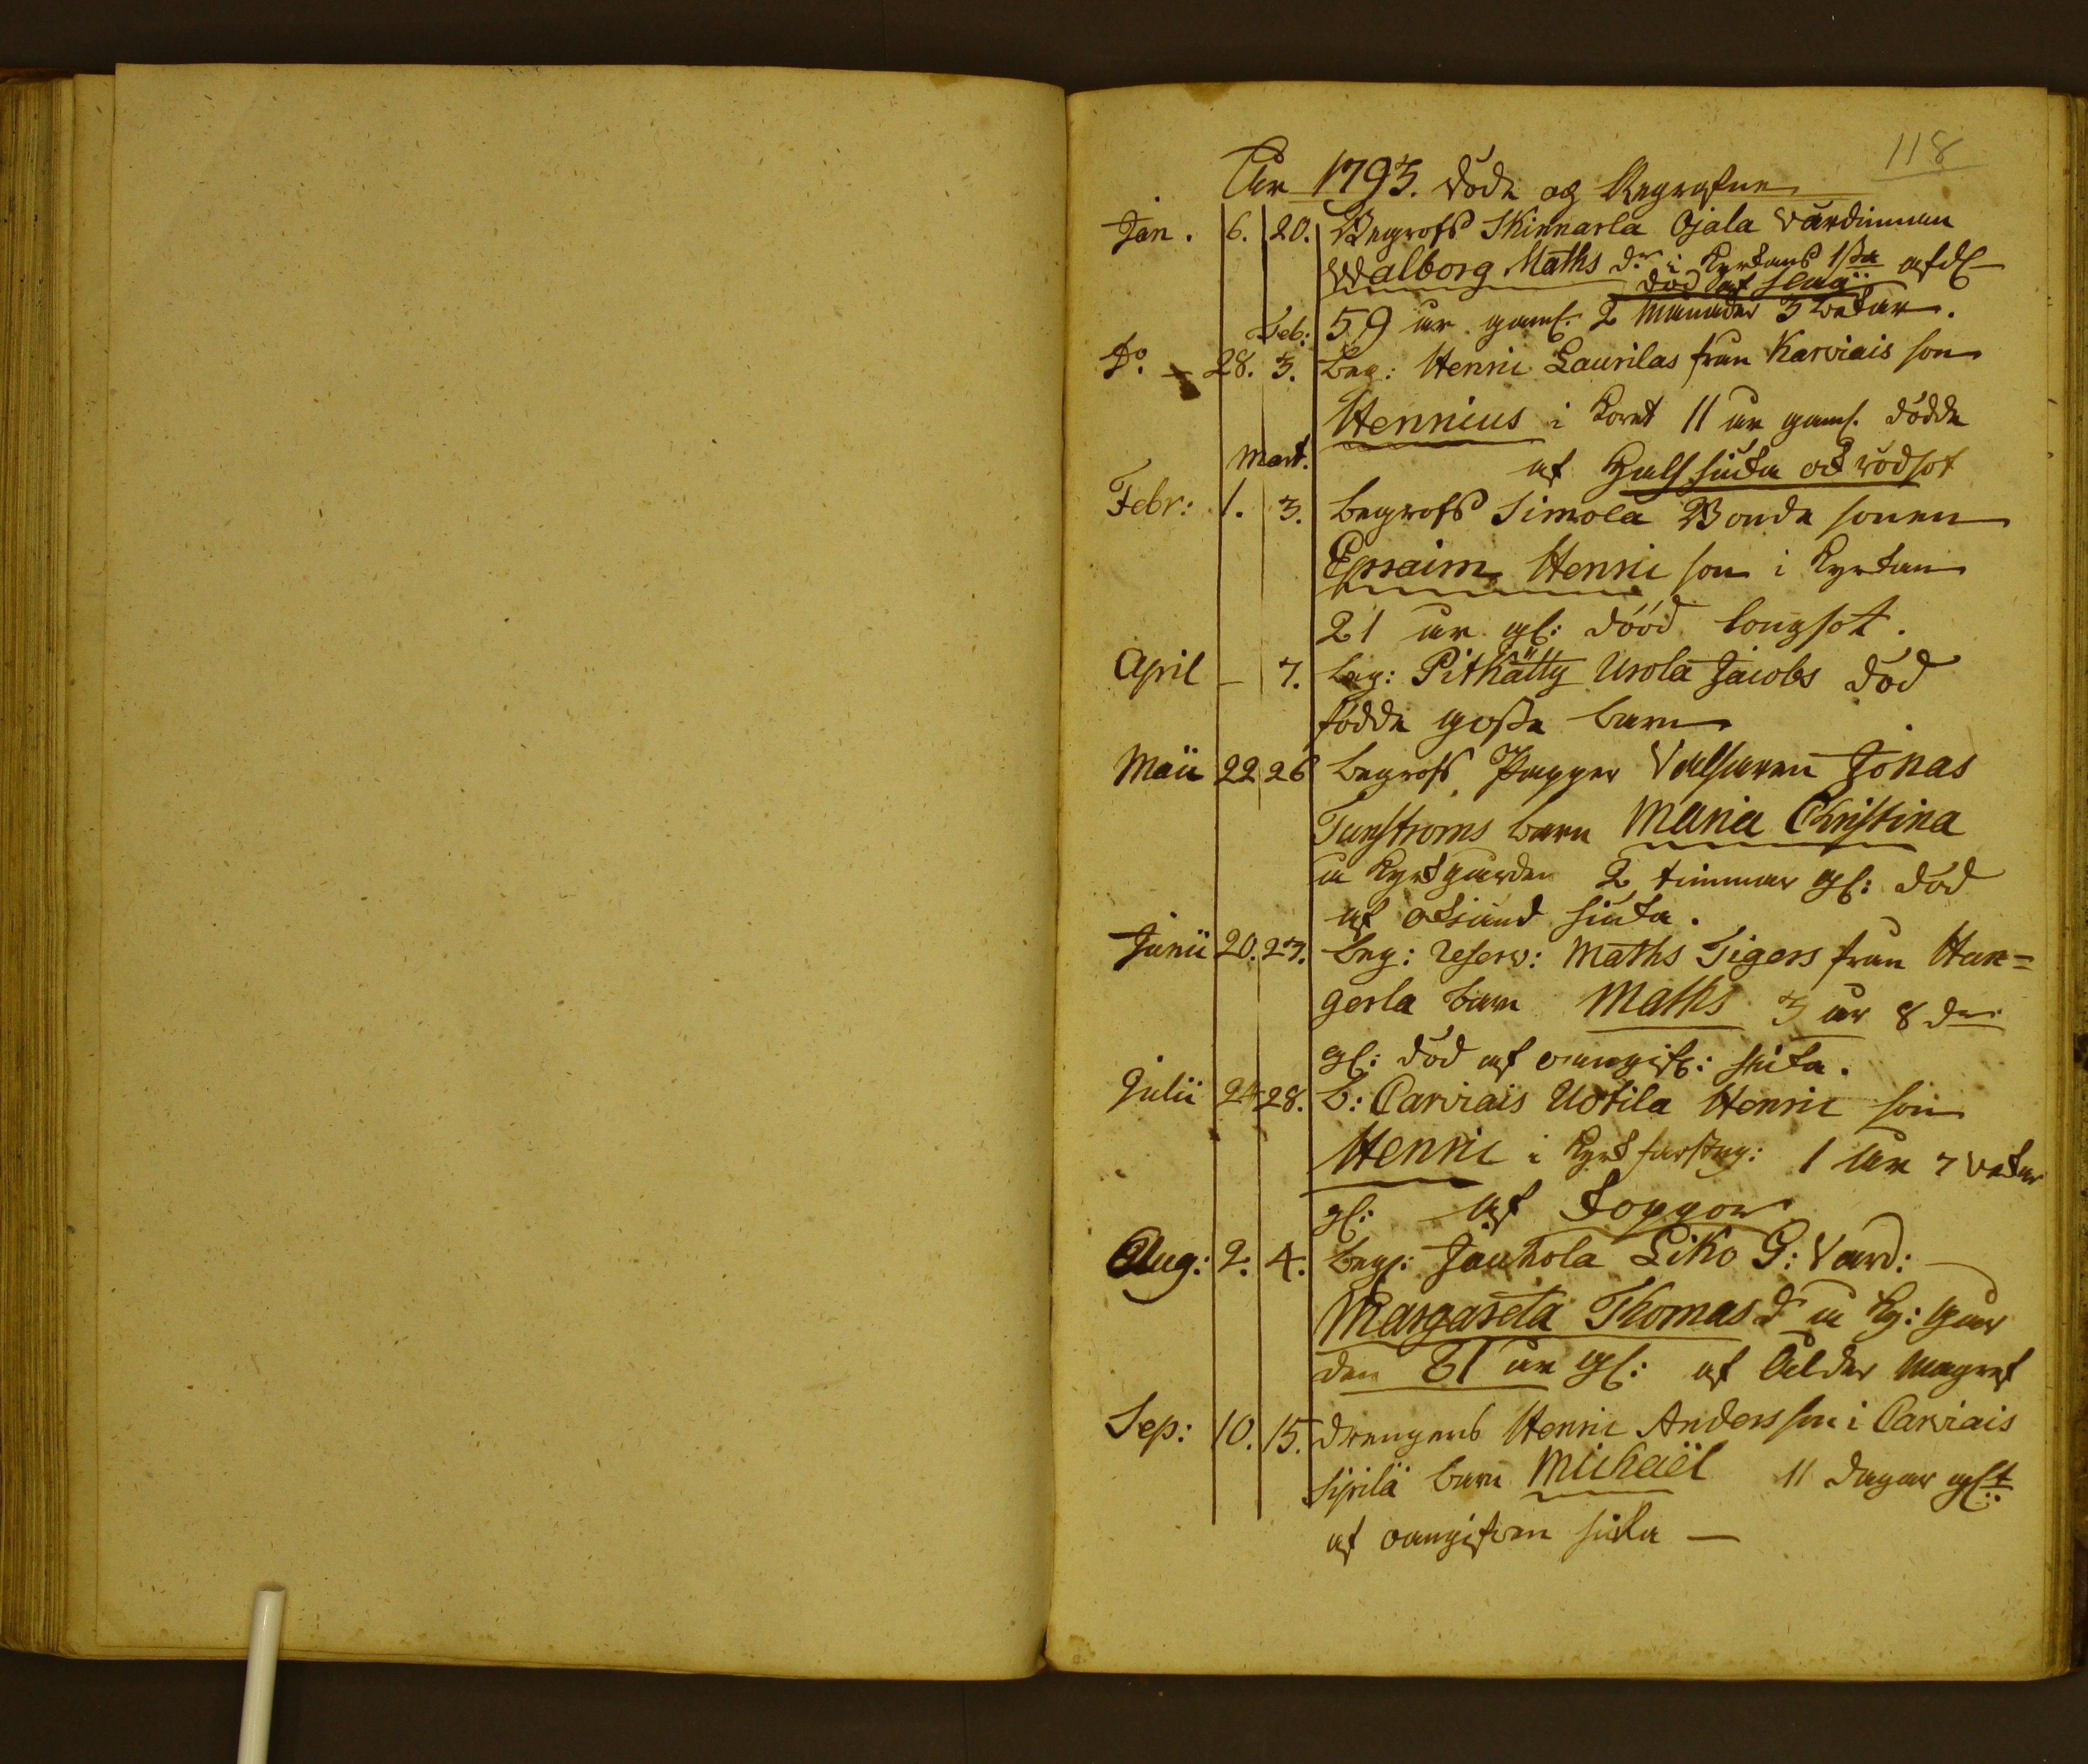 118
Åhr 1793. döde og Begrafne
Jan. 6. 20. Begrofs Skinnarla Ojala värdinnan
Walborg Maths dr i Kyrkans 1sta afd
död af slag
59 år gaml. 2 månader 3 vekor.
Feb:
Do. – 28. 3. beg: Henric Laurilas från Karviais son
Hennicus i Koret 11 år gaml. dödde
Mart. af Halssiuka och rödsot
Febr: 1. 3. begrofs Simola Bonde sonen
Epraim Henric son i Kyrkan
21 år gl: dööd longsot.
April – 7. beg: Pitkätty Urola Jacobs död
födde gosse barn
Maii 22 26 begrofs Jonas
Tunstroms barn Maria Christina
å Kyrkgården 2 timmar gl: död
af okiand siuka.
Junii 20. 23. beg: reserv: Maths Tigers från Han=
gerla barn Maths 3 år 8 dr
gl: död af oangifv: siuka.
Julii 24 28. b: Carviais Uotila Henric son
Henric i Kyrk 1 år 7 vekor
gl: af Koppor
Aug: 2. 4. begr: Jauhola Liko G: Vard:
Margareta Thomas dr å Ky: går
den 81 år gl: af Ålder
Sep: 10. 15. drengens Henric Anders son i Carviais
Syrilä barn Michaël 11 dagar glt
af oangifven siuka —